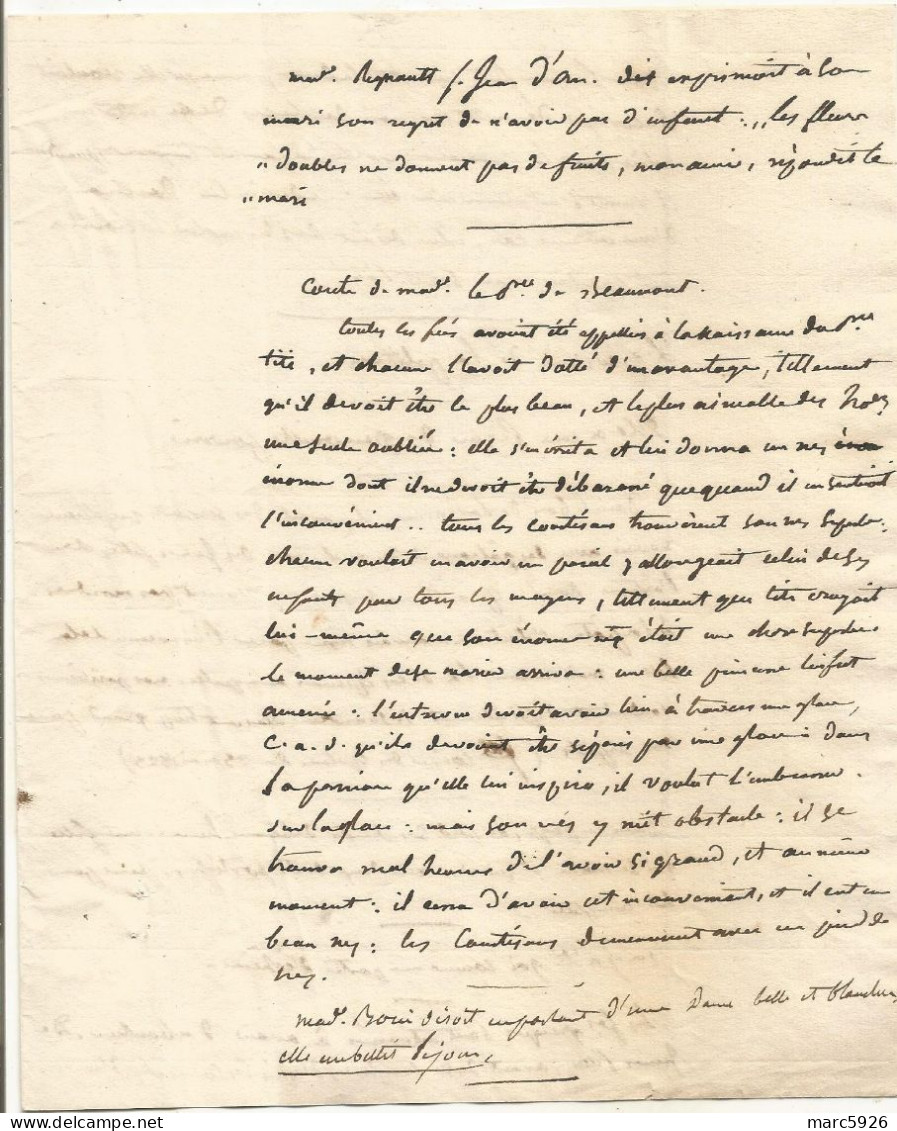 mad. Regnault S. Jean d'An. dis exprimait à son
mari son regret de n'avoir pas d'enfent : „les fleurs
„doubles ne donnent pas de fruits, mon amie, répondit le
„mari
Conte de mad. le Pce de Beaumont.
toutes les fées avoient été appellées à la naissance du Pce
tité, et chacune l'avoit dotté d'un avantage, tellement
qu'il devoit être le plus beau, et le plus aimable des
une seule oubliée : elle s'irrita et lui donna un nez
énorme dont il ne devoit être débarassé que quand il en sentiroit
l'inconvénient .. tous les courtisans trouvèrent son nés superbe.
chacun vouloit en avoir un pareil y allongeait celui de ses
enfants par tous les moyens, tellement que tité croyait
lui-même que son énorme nés était une chose superbe
le moment de se marier arriva : une belle princesse lui fut
amenée : l'entrevue devoit avoir lieu à travers une glace,
C. a. d. qu'ils devoient être séparés par une glace : dans
la passion qu'elle lui inspira, il voulut l'embrasser
sur la glace : mais son nés y mêt obstacle : il se
trouva malheureux de l'avoir si grand, et au même
moment : il cessa d'avoir cet inconvénient, et il eut un
beau nez : les Courtisans demeurent avec un pied de
nez.
mad. disoit en parlant d'une Dame belle et blanche,
elle embellit le jour.
marc5926